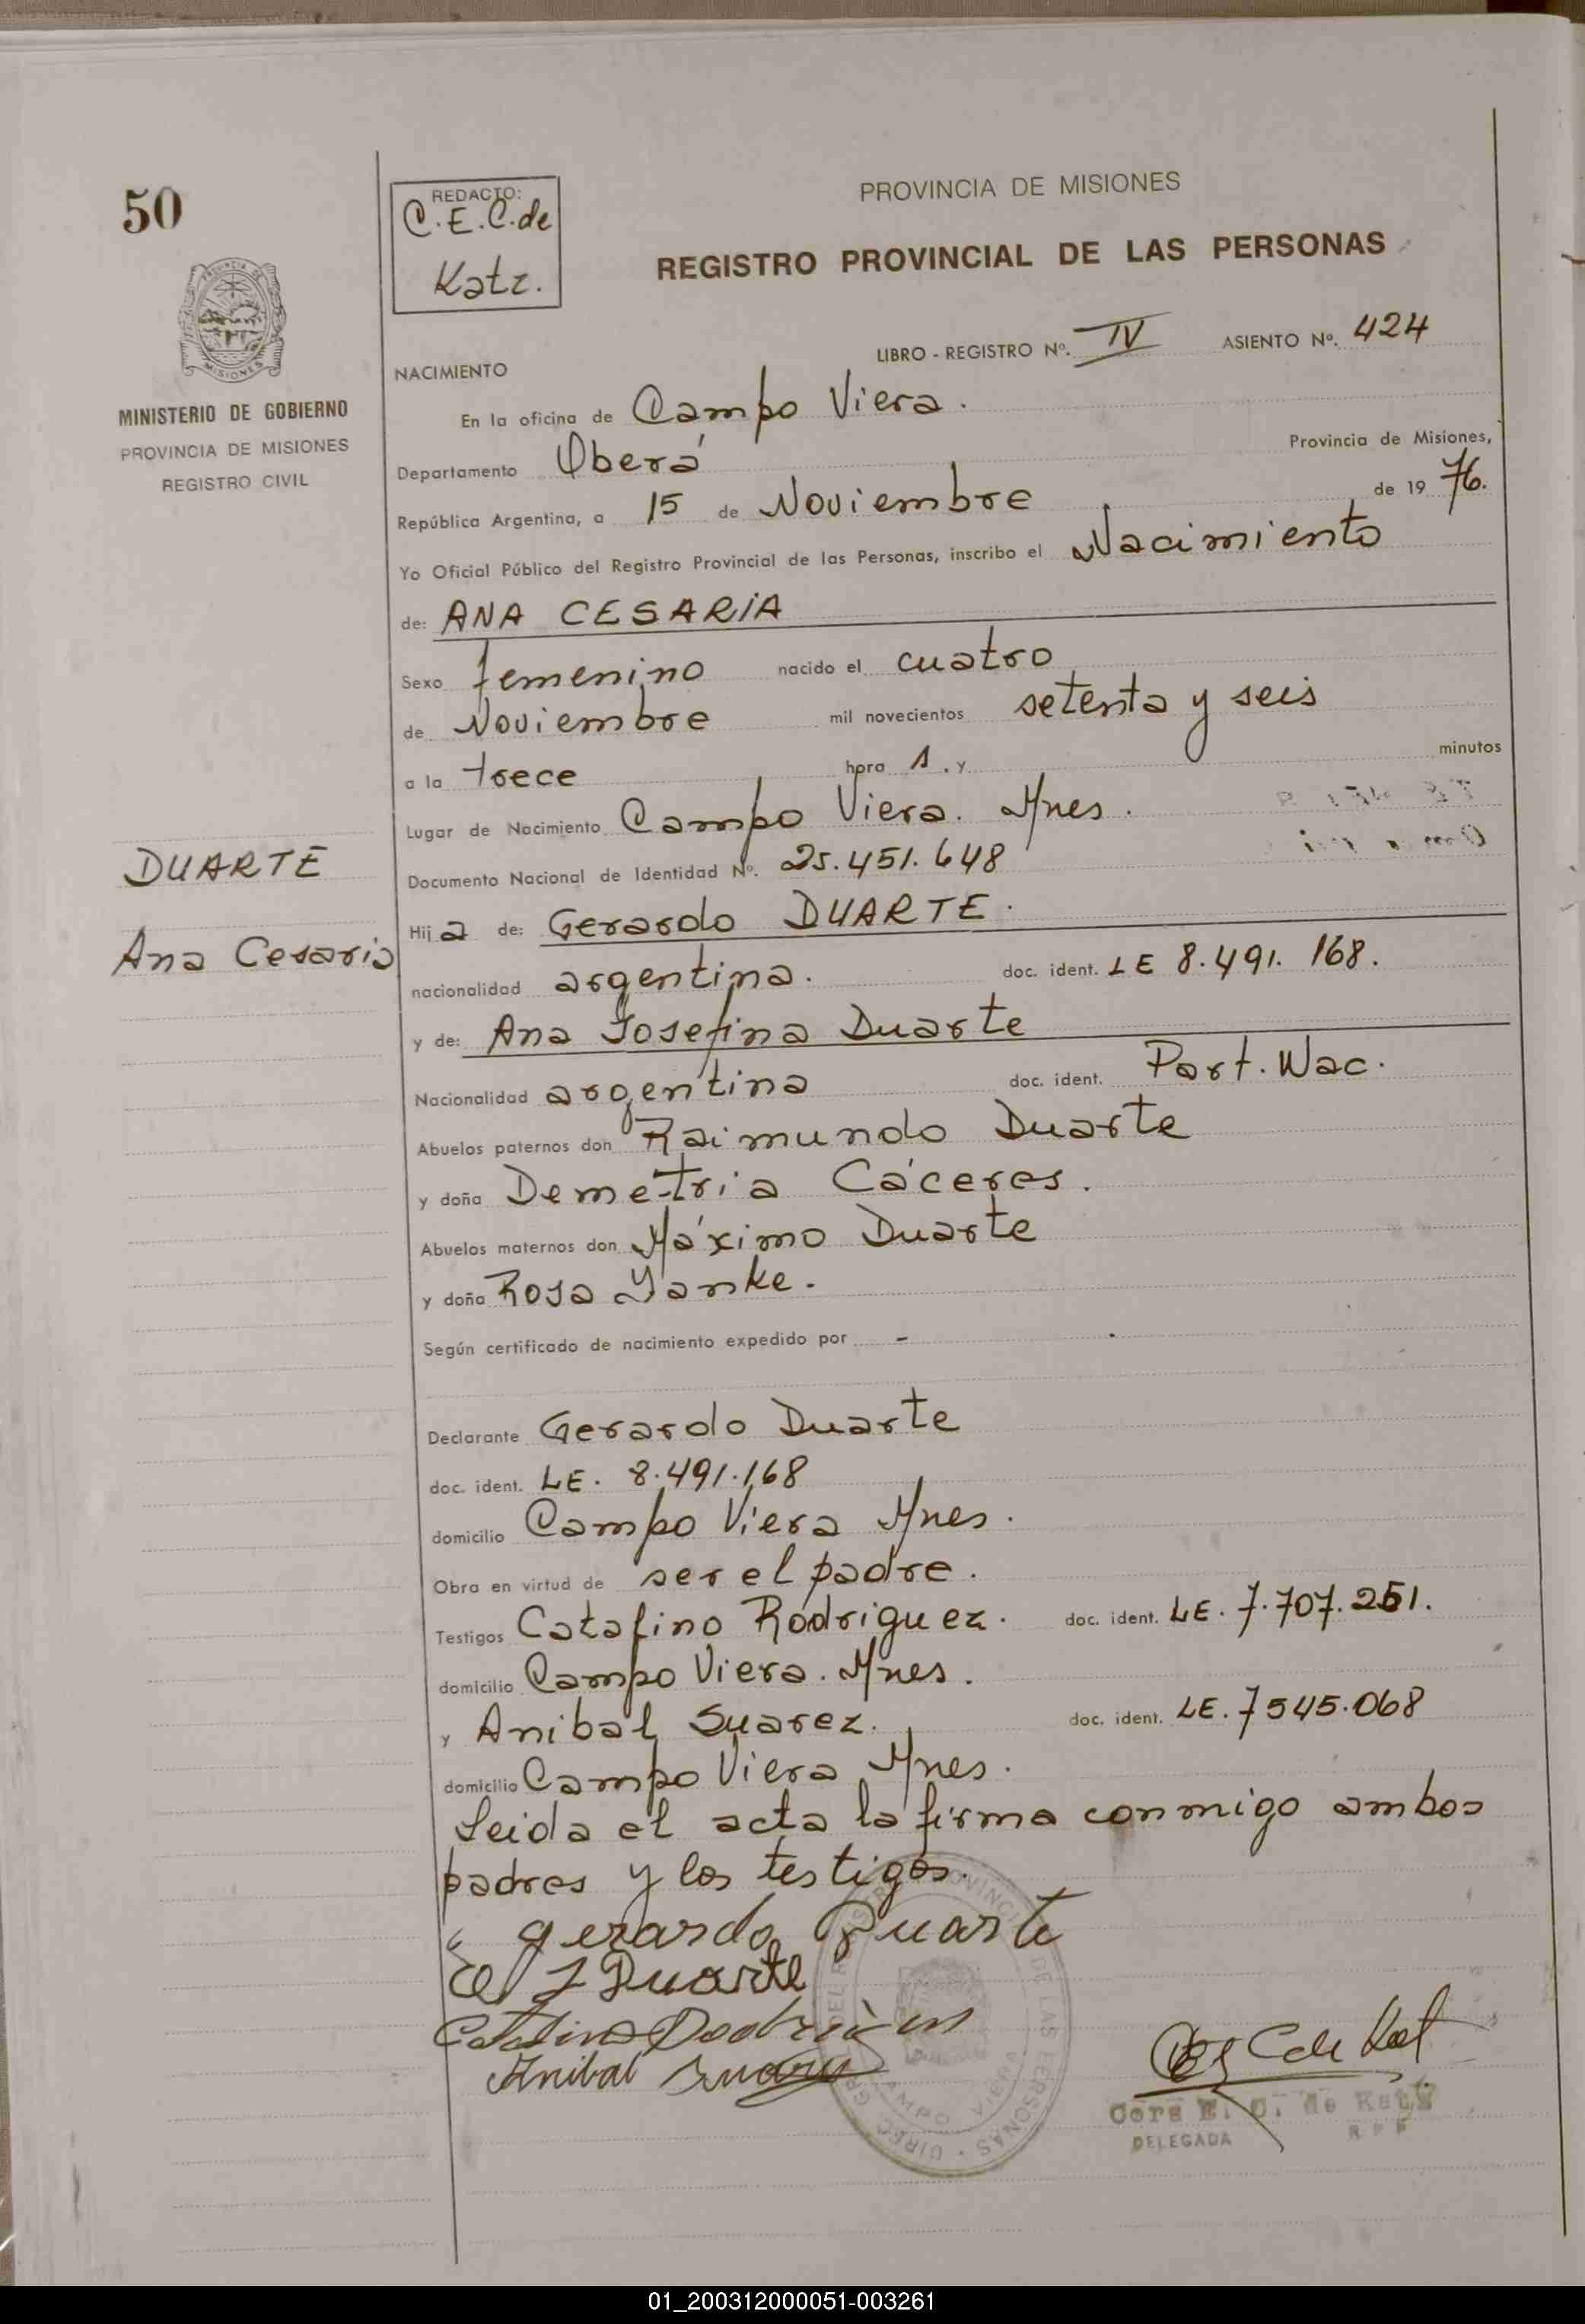 50
REDACTO:
C.E.C. de
Katz.
PROVINCIA DE MISIONES
REGISTRO PROVINCIAL DE LAS PERSONAS
PROVINCIA DE
MISIONES
MINISTERIO DE GOBIERNO
PROVINCIA DE MISIONES
REGISTRO CIVIL
LIBRO - REGISTRO Nº. IV ASIENTO Nº. 424
NACIMIENTO
En la oficina de Campo Viera.
Departamento Oberá Provincia de Misiones,
República Argentina, a 15 de Noviembre de 19 76.
Yo Oficial Público del Registro Provincial de las Personas, inscribo el Nacimiento
de: ANA CESARIA
Sexo femenino nacido el cuatro
de Noviembre mil novecientos setenta y seis
a la trece hora s. y minutos
Lugar de Nacimiento Campo Viera. Mnes.
Documento Nacional de Identidad Nº. 25.451.648
DUARTE
Ana Cesaria
Hija de: Gerardo DUARTE.
nacionalidad argentina. doc. ident. LE 8.491.168.
y de: Ana Josefina Duarte
Nacionalidad argentina doc. ident. Part. Nac.
Abuelos paternos don Raimundo Duarte
y doña Demetria Cáceres.
Abuelos maternos don Máximo Duarte
y doña Rosa Yanke.
Según certificado de nacimiento expedido por -
Declarante Gerardo Duarte
doc. ident. LE. 8.491.168
domicilio Campo Viera Mnes.
Obra en virtud de ser el padre.
Testigos Catalino Rodriguez. doc. ident. LE. 7.707.251.
domicilio Campo Viera. Mnes.
y Anibal Suarez. doc. ident. LE. 7545.068
domicilio Campo Viera Mnes.
Leida el acta la firma conmigo ambos
padres y los testigos.
gerardo Duarte
J Duarte
Anibal
DELEGADA
01_200312000051-003261